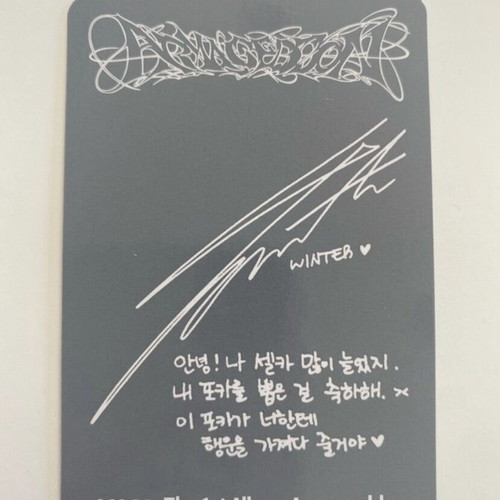 ARMAGEDDON
WINTER ♥
안녕! 나 셀카 많이 늘었지.
내 포카를 뽑은 걸 축하해. ×
이 포카가 너한테
행운을 가져다 줄거야 ♥